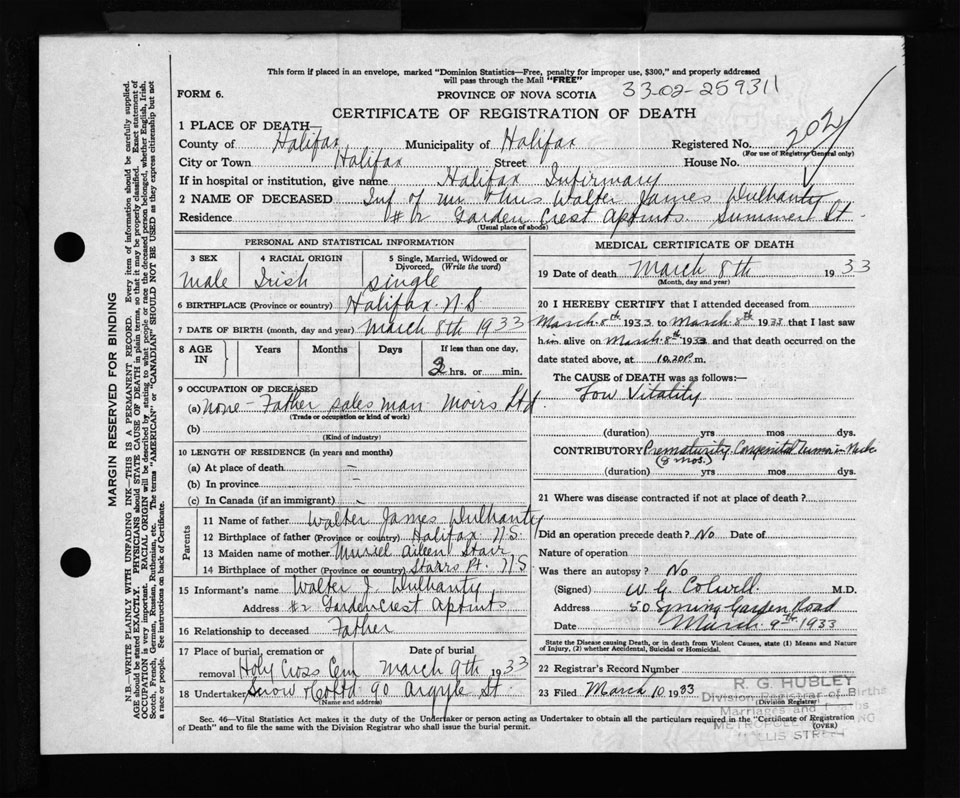 This form if placed in an envelope, marked "Dominion Statistics—Free, penalty for improper use, $300," and properly addressed
will pass through the Mail "FREE"
FORM 6.
PROVINCE OF NOVA SCOTIA
33-02-259311
CERTIFICATE OF REGISTRATION OF DEATH
202
1 PLACE OF DEATH—
County of Halifax Municipality of Halifax Registered No.
(For use of Registrar General only)
City or Town Halifax Street House No.
If in hospital or institution, give name Halifax Infirmary
2 NAME OF DECEASED Inf of Mr & Mrs Walter James Dulhanty
Residence #2 Garden Crest Aptmts. Summer St.
(Usual place of abode)
PERSONAL AND STATISTICAL INFORMATION
3 SEX 4 RACIAL ORIGIN 5 Single, Married, Widowed or Divorced. (Write the word)
Male Irish Single
6 BIRTHPLACE (Province or country) Halifax. N.S
7 DATE OF BIRTH (month, day and year) March 8th 1933
8 AGE IN Years Months Days If less than one day,
2 hrs. or min.
9 OCCUPATION OF DECEASED
(a) None - Father sales man Moirs Ltd.
(Trade or occupation or kind of work)
(b)
(Kind of industry)
10 LENGTH OF RESIDENCE (in years and months)
(a) At place of death —
(b) In province –
(c) In Canada (if an immigrant) –
Parents
11 Name of father Walter James Dulhanty
12 Birthplace of father (Province or country) Halifax N.S.
13 Maiden name of mother Muriel Aileen Starr
14 Birthplace of mother (Province or country) Starrs Pt. N.S
15 Informant's name Walter J. Dulhanty
Address #2 Gardencrest Aptmts
16 Relationship to deceased Father
17 Place of burial, cremation or removal Date of burial
Holy Cross Cem March 9th 1933
18 Undertaker Snow & Co Ltd 90 Argyle St.
(Name and address)
MEDICAL CERTIFICATE OF DEATH
19 Date of death March 8th 1933
(Month, day and year)
20 I HEREBY CERTIFY that I attended deceased from
March 8th 1933 to March 8th 1933 that I last saw
him alive on March 8th 1933 and that death occurred on the
date stated above, at 10.20 P. m.
The CAUSE of DEATH was as follows:—
Low Vitality
(duration) yrs mos dys.
CONTRIBUTORY Prematurity. Congenital Tumor in Neck
(8 mos.)
(duration) yrs. mos. dys.
21 Where was disease contracted if not at place of death?
Did an operation precede death? No Date of
Nature of operation
Was there an autopsy? No
(Signed) W. G. Colwell. M.D.
Address 50 Spring Garden Road
Date March 9th 1933
State the Disease causing Death, or in death from Violent Causes, state (1) Means and Nature
of Injury, (2) whether Accidental, Suicidal or Homicidal.
22 Registrar's Record Number
23 Filed March 10 1933
(Division Registrar)
R. G. HUBLEY
Division Registrar of Births
Marriages and Deaths
HOLLIS STREET
Sec. 46—Vital Statistics Act makes it the duty of the Undertaker or person acting as Undertaker to obtain all the particulars required in the "Certificate of Registration
of Death" and to file the same with the Division Registrar who shall issue the burial permit.
(OVER)
MARGIN RESERVED FOR BINDING
N.B.—WRITE PLAINLY WITH UNFADING INK—THIS IS A PERMANENT RECORD. Every item of information should be carefully supplied.
AGE should be stated EXACTLY. PHYSICIANS should STATE CAUSE OF DEATH in plain terms, so that it may be properly classified. Exact statement of
OCCUPATION is very important. RACIAL ORIGIN will be described by stating to what people or race the deceased person belonged, whether English, Irish,
Scotch, French, German, Russian, Ruthenian, etc. The terms "AMERICAN" or "CANADIAN" SHOULD NOT BE USED as they express citizenship but not
a race or people. See instructions on back of Certificate.